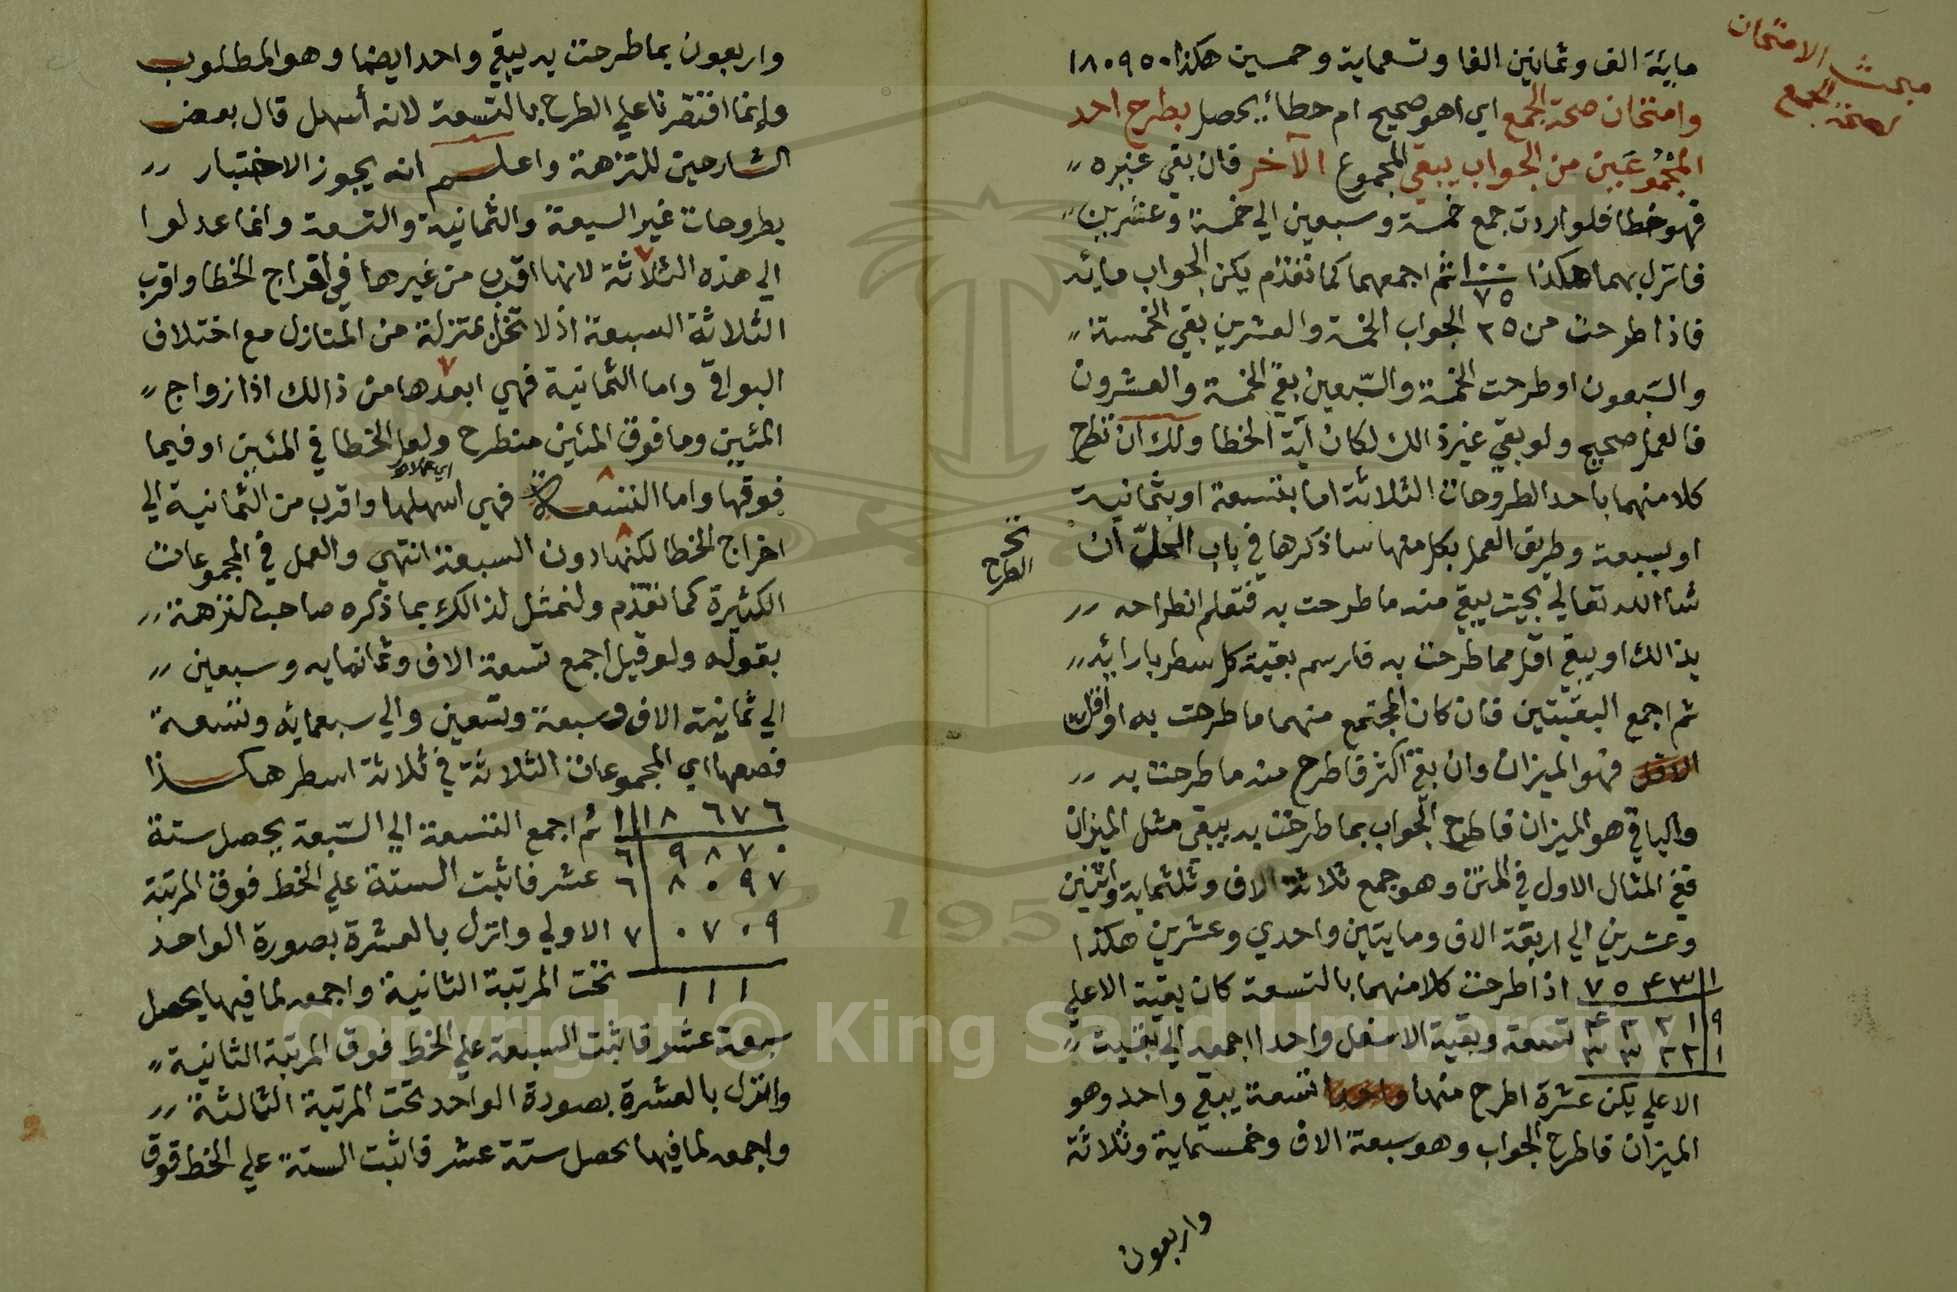 مبحث الامتحان
لصحة الجمع
ماية الف وثمانين الفا وتسعماية وخمسين هكذا ١٨٠٩٥٠
وامتحان صحة الجمع اي اهو صحيح ام خطاء يحصل بطرح احد
المجموعين من الجواب يبقي المجموع الآخر فان بقي غيره
فهو خطا فلو اردت جمع خمسة وسبعين الي خمسة وعشرين
فانزل بهما هكذا ١٠٠ ثم اجمعهما كما تقدم يكن الجواب مائه
٧٥
٢٥
فاذا طرحت من الجواب الخمسة والعشرين بقي الخمسة
والسبعون او طرحت الخمسة والسبعين بقي الخمسة والعشرون
فالعمل صحيح ولو بقي غير ذالك لكان آية الخطا ولك ان تطرح
كلا منهما باحد الطروحات الثلاثة اما بتسعة او بثمانية
او بسبعة وطريق العمل بكل منها ساذكرها في باب الحل ان
الطرح
شا الله تعالي بحيث يبقي منه ما طرحت به فتعلم انطراحه
بذالك او يبقي اقل مما طرحت به فارسم بقية كل سطر بازائه
ثم اجمع البقيتين فان كان المجتمع منهما ما طرحت به او اقل
فهو الميزان وان بقي اكثر فاطرح منه ما طرحت به
والباقي هو الميزان فاطرح الجواب بما طرحت به يبقي مثل الميزان
ففي المثال الاول في المتن وهو جمع ثلاثة الاف وثلثماية واثنين
وعشرين الي اربعة الاف ومايتين واحدي وعشرين هكذا
٧٥٤٣ ١ اذا طرحت كلا منهما بالتسعة كان بقية الاعلي
٤٢٢١ ٩ تسعة وبقية الاسفل واحدا اجمعه الي بقيت
٣٣٢٢ ١
الاعلي يكن عشرة اطرح منها تسعة يبقي واحد وهو
الميزان فاطرح الجواب وهو سبعة الاف وخمسماية وثلاثة
واربعون
واربعون بما طرحت به يبقي واحد ايضا وهو المطلوب
وإنما اقتصرنا علي الطرح بالتسعة لانه أسهل قال بعض
الشارحين للنزهة واعلم انه يجوز الاختبار
بطروحات غير السبعة والثمانية والتسعة وانما عدلوا
الي هذه الثلاثة لانها اقرب من غيرها في اخراج الخطا واقرب
٧
الثلاثة السبعة اذ لا تخل بمنزلة من المنازل مع اختلاف
البواقي واما الثمانية فهي ابعدها من ذالك اذ ازواج
٧
المئين وما فوق المئين منطرح ولعل الخطا في المئين او فيما
فوقها واما التسعة فهي اسهلها واقرب من الثمانية الي
٨
اخراج الخطا لكنها دون السبعة انتهي والعمل في المجموعات
٨
الكثيرة كما تقدم ولنمثل لذالك بما ذكره صاحب النزهة
بقوله ولو قيل اجمع تسعة الاف وثمانمايه وسبعين
الي ثمانية الاف وسبعة وتسعين والي سبعمايه وتسعة
فضعها اي المجموعات الثلاثة في ثلاثة اسطر هاكذا
١٨٦٧٦ ١ ثم اجمع التسعة الي السبعة يحصل ستة
٩٨٧٠ ٦
٨٠٩٧ ٦ عشر فاثبت الستة علي الخط فوق المرتبة
٠٧٠٩ ٧ الاولي وانزل بالعشرة بصورة الواحد
١١١ تحت المرتبة الثانية واجمعه لما فيها يحصل
سبعة عشر فاثبت السبعة علي الخط فوق المرتبة الثانية
وانزل بالعشرة بصورة الواحد تحت المرتبة الثالثة
واجمعه لما فيها يحصل ستة عشر فاثبت الستة علي الخط فوق
Copyright © King Saud University
1957